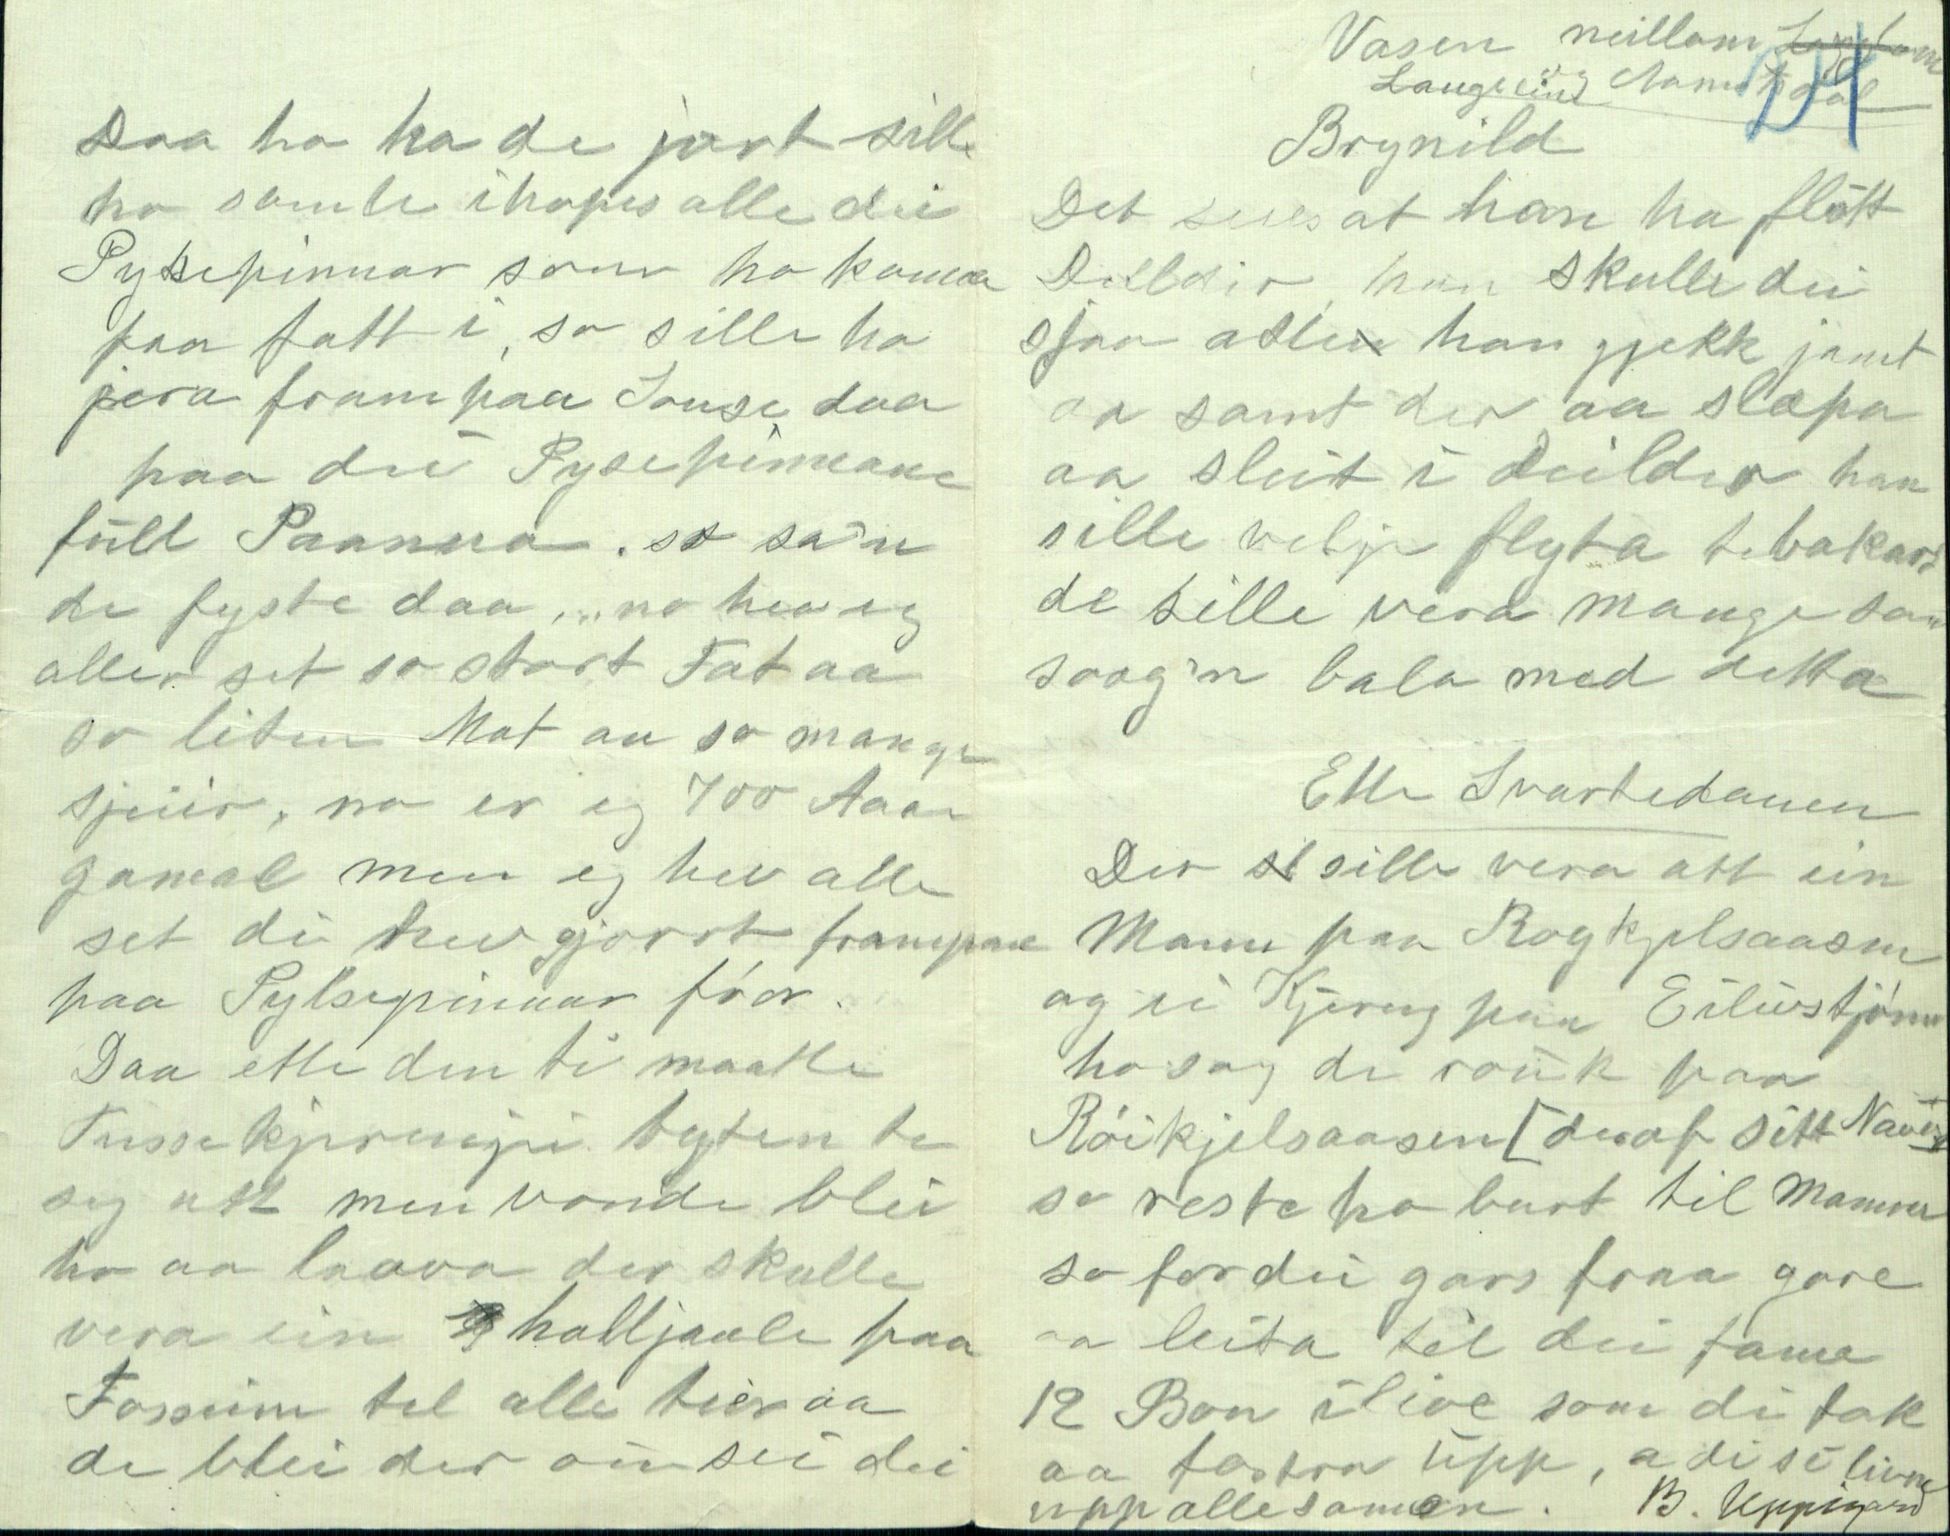 Daa ho ha de jort sille
ho samle ihopes alle dei
Pylsepinnar som ho koma
paa fatt i, so sille ho
jera fram paa Souse daa
paa dei Pysepinnane
full Paanna. so sa'n
de fyste daa, no hev eg
aller set so stort Fat aa
so liten Mat aa so mange
sjeiir, no er eg 700 Aar
gamal men eg hev alle
set di hev gjorrt frampaa
paa Pylsepinnar før.
Daa ette den ti maatte
Tussekjerengi byten te
seg att men vonde blei
ho aa laava der skulle
vera ein halljaale paa
Fossum til alle tier aa
de blei der au sei dei
Vasen meillom
Langeein og
Brynild
Det sies at han ha flött
Deildir, han skulle dei
sjaa atte han gjekk jamt
aa samt der aa slæpa
aa sleit i Deilder han
sille velje flyta tebakars
de sille vera mange som
saag'n bala med detta
Ette Svartedauen
Der sille vera att ein
Mann paa Rogkjelsaasen
og ei Kjering paa Eilivstjönn
ho sag de rouk paa
Röikjelsaasen [deraf sitt Navn
so reste ho burt til Mannen
so for dei gars fraa gare
aa leita til dei fann
12 Bon ilive som di tok
aa fostra upp, a di si livne
upp allesamen. B. Uppigard